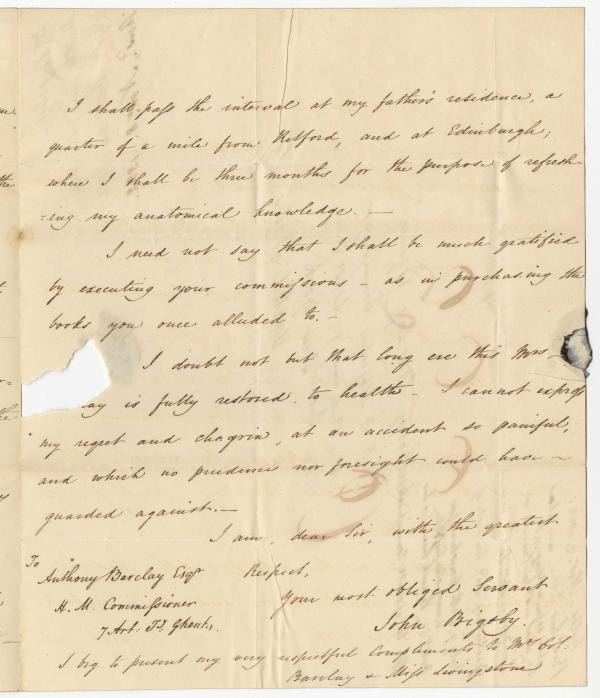 I shall pass the interval at my father's residence, a
quarter of a mile from Retford, and at Edinburgh;
where I shall be three months for the purpose of refresh-
=ing my anatomical knowledge. —
I need not say that I shall be much gratified
by executing your commissions — as in purchasing the
books you once alluded to. —
I doubt not but that long ere this Mrs
ay is fully restored to health — I cannot express
my regret and chagrin, at an accident so painful,
and which no prudence nor foresight could have —
guarded against. —
I am, dear Sir, with the greatest
Respect,
Your most obliged Servant
John Bigsby.
To
Anthony Barclay Esqr
H. M. Commissioner
7 Art: Ty Ghent.
I beg to present my very respectful Complements to Mrs Col:
Barclay & Miss Livingstone